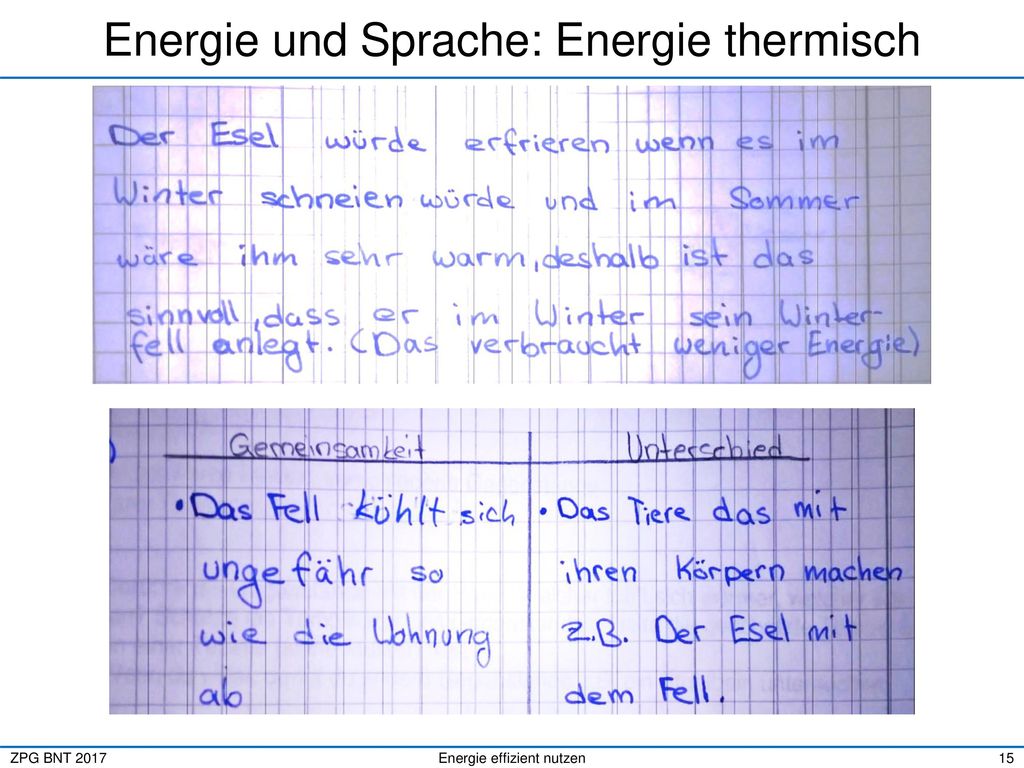 Energie und Sprache: Energie thermisch
Der Esel würde erfrieren wenn es im
Winter schneien würde und im Sommer
wäre ihm sehr warm, deshalb ist das
sinnvoll, dass er im Winter sein Winter-
fell anlegt. (Das verbraucht weniger Energie)
)
Gemeinsamkeit
• Das Fell kühlt sich
ungefähr so
wie die Wohnung
ab
Unterschied
• Das Tiere das mit
ihren Körpern machen
z.B. Der Esel mit
dem Fell.
ZPG BNT 2017
Energie effizient nutzen
15